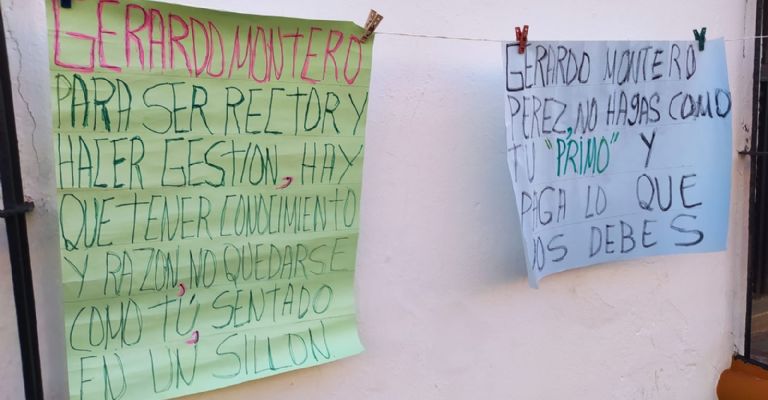 GERARDO MONTERO
PARA SER RECTOR Y
HACER GESTION, HAY
QUE TENER CONOCIMIENTO
Y RAZON, NO QUEDARSE
COMO TÚ, SENTADO
EN UN SILLON
GERARDO MONTERO
PEREZ, NO HAGAS COMO
TU "PRIMO" Y
PAGA LO QUE
NOS DEBES